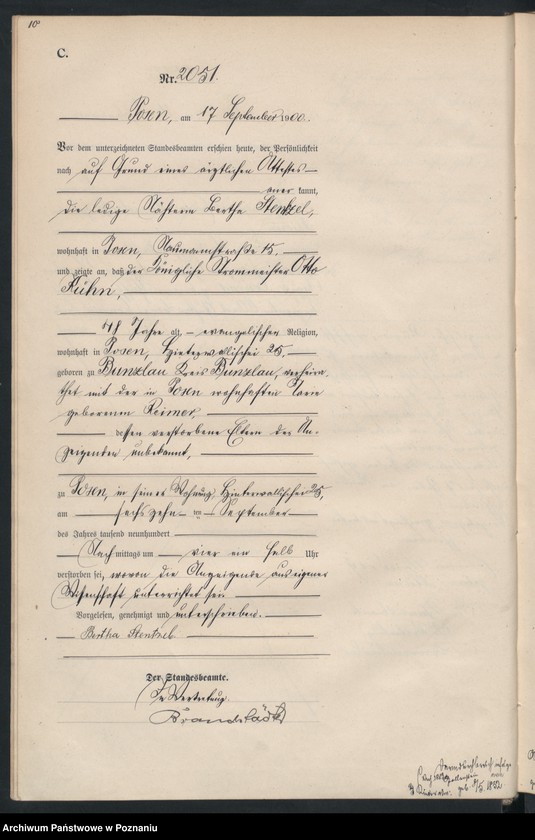 C.
Nr. 2051.
Posen, am 17 September 1900.
Vor dem unterzeichneten Standesbeamten erschien heute, der Persönlichkeit
nach auf Grund eines ärztlichen Attestes
kannt,
die ledige Näherin Bertha Stentzel,
wohnhaft in Posen, Naumannstraße 15.
und zeigte an, daß der Königliche Strommeister Otto
Kühn,
48 Jahre alt, evangelischer Religion,
wohnhaft in Posen, Hinterwallischei 25,
geboren zu Bunzlau Kreis Bunzlau, verheira
thet mit der in Posen wohnhaften
geborenen Reimer,
dessen verstorbene Eltern der An-
zeigenden unbekannt,
zu Posen, in seiner Wohnung, Hinterwallischei 25,
am sechszehn ten September
des Jahres tausend neunhundert
Nach mittags um vier ein halb Uhr
verstorben sei, wovon die Anzeigende aus eigener
Wissenschaft unterrichtet sei
Vorgelesen, genehmigt und unterschrieben.
Bertha Stentzel.
Der Standesbeamte.
In Vertretung.
Brandstädter
Archiwum Państwowe w Poznaniu